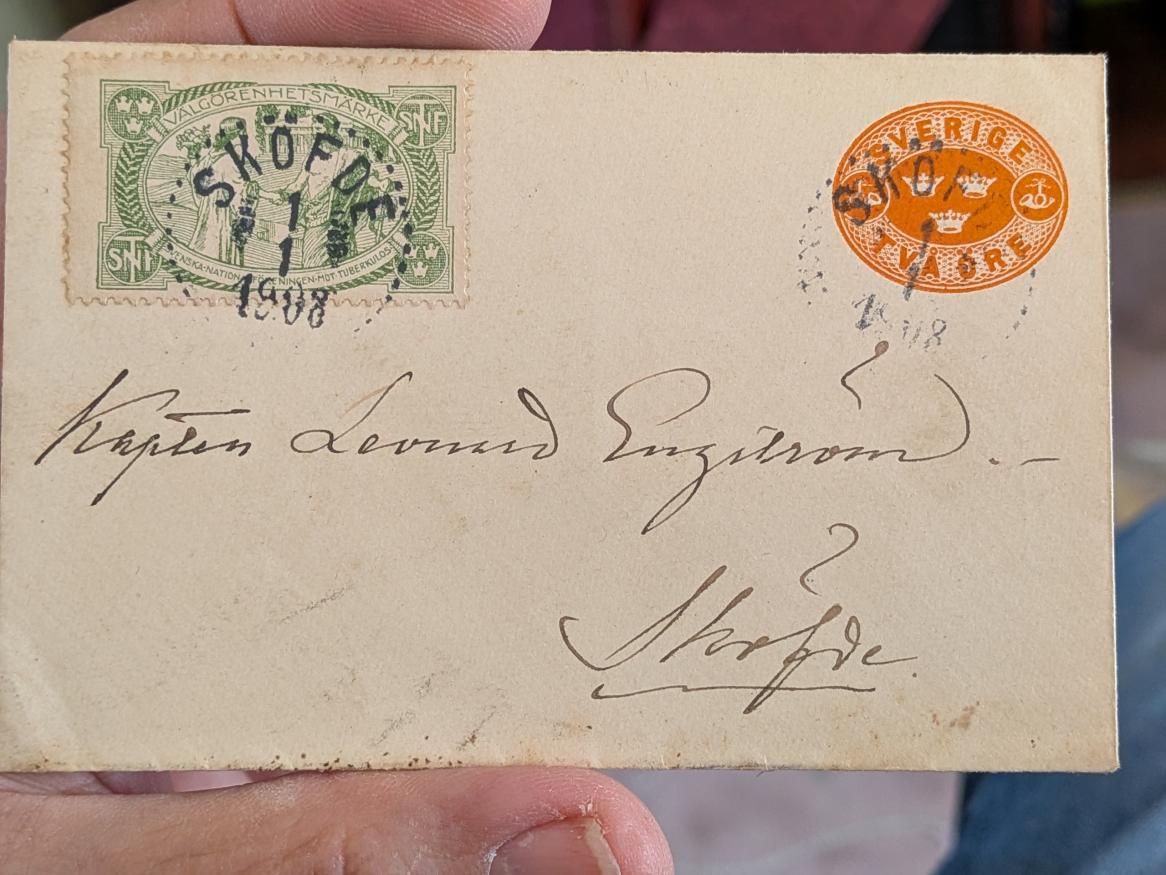 VÄLGÖRENHETSMÄRKE
SNTF
SNTF
SVENSKA·NATIONALFÖRENINGEN·MOT·TUBERKULOS
SKÖFDE
1
1
1908
SVERIGE
TVÅ ÖRE
SKÖFDE
1
1
1908
Kapten Leonard Engström.–
Sköfde.